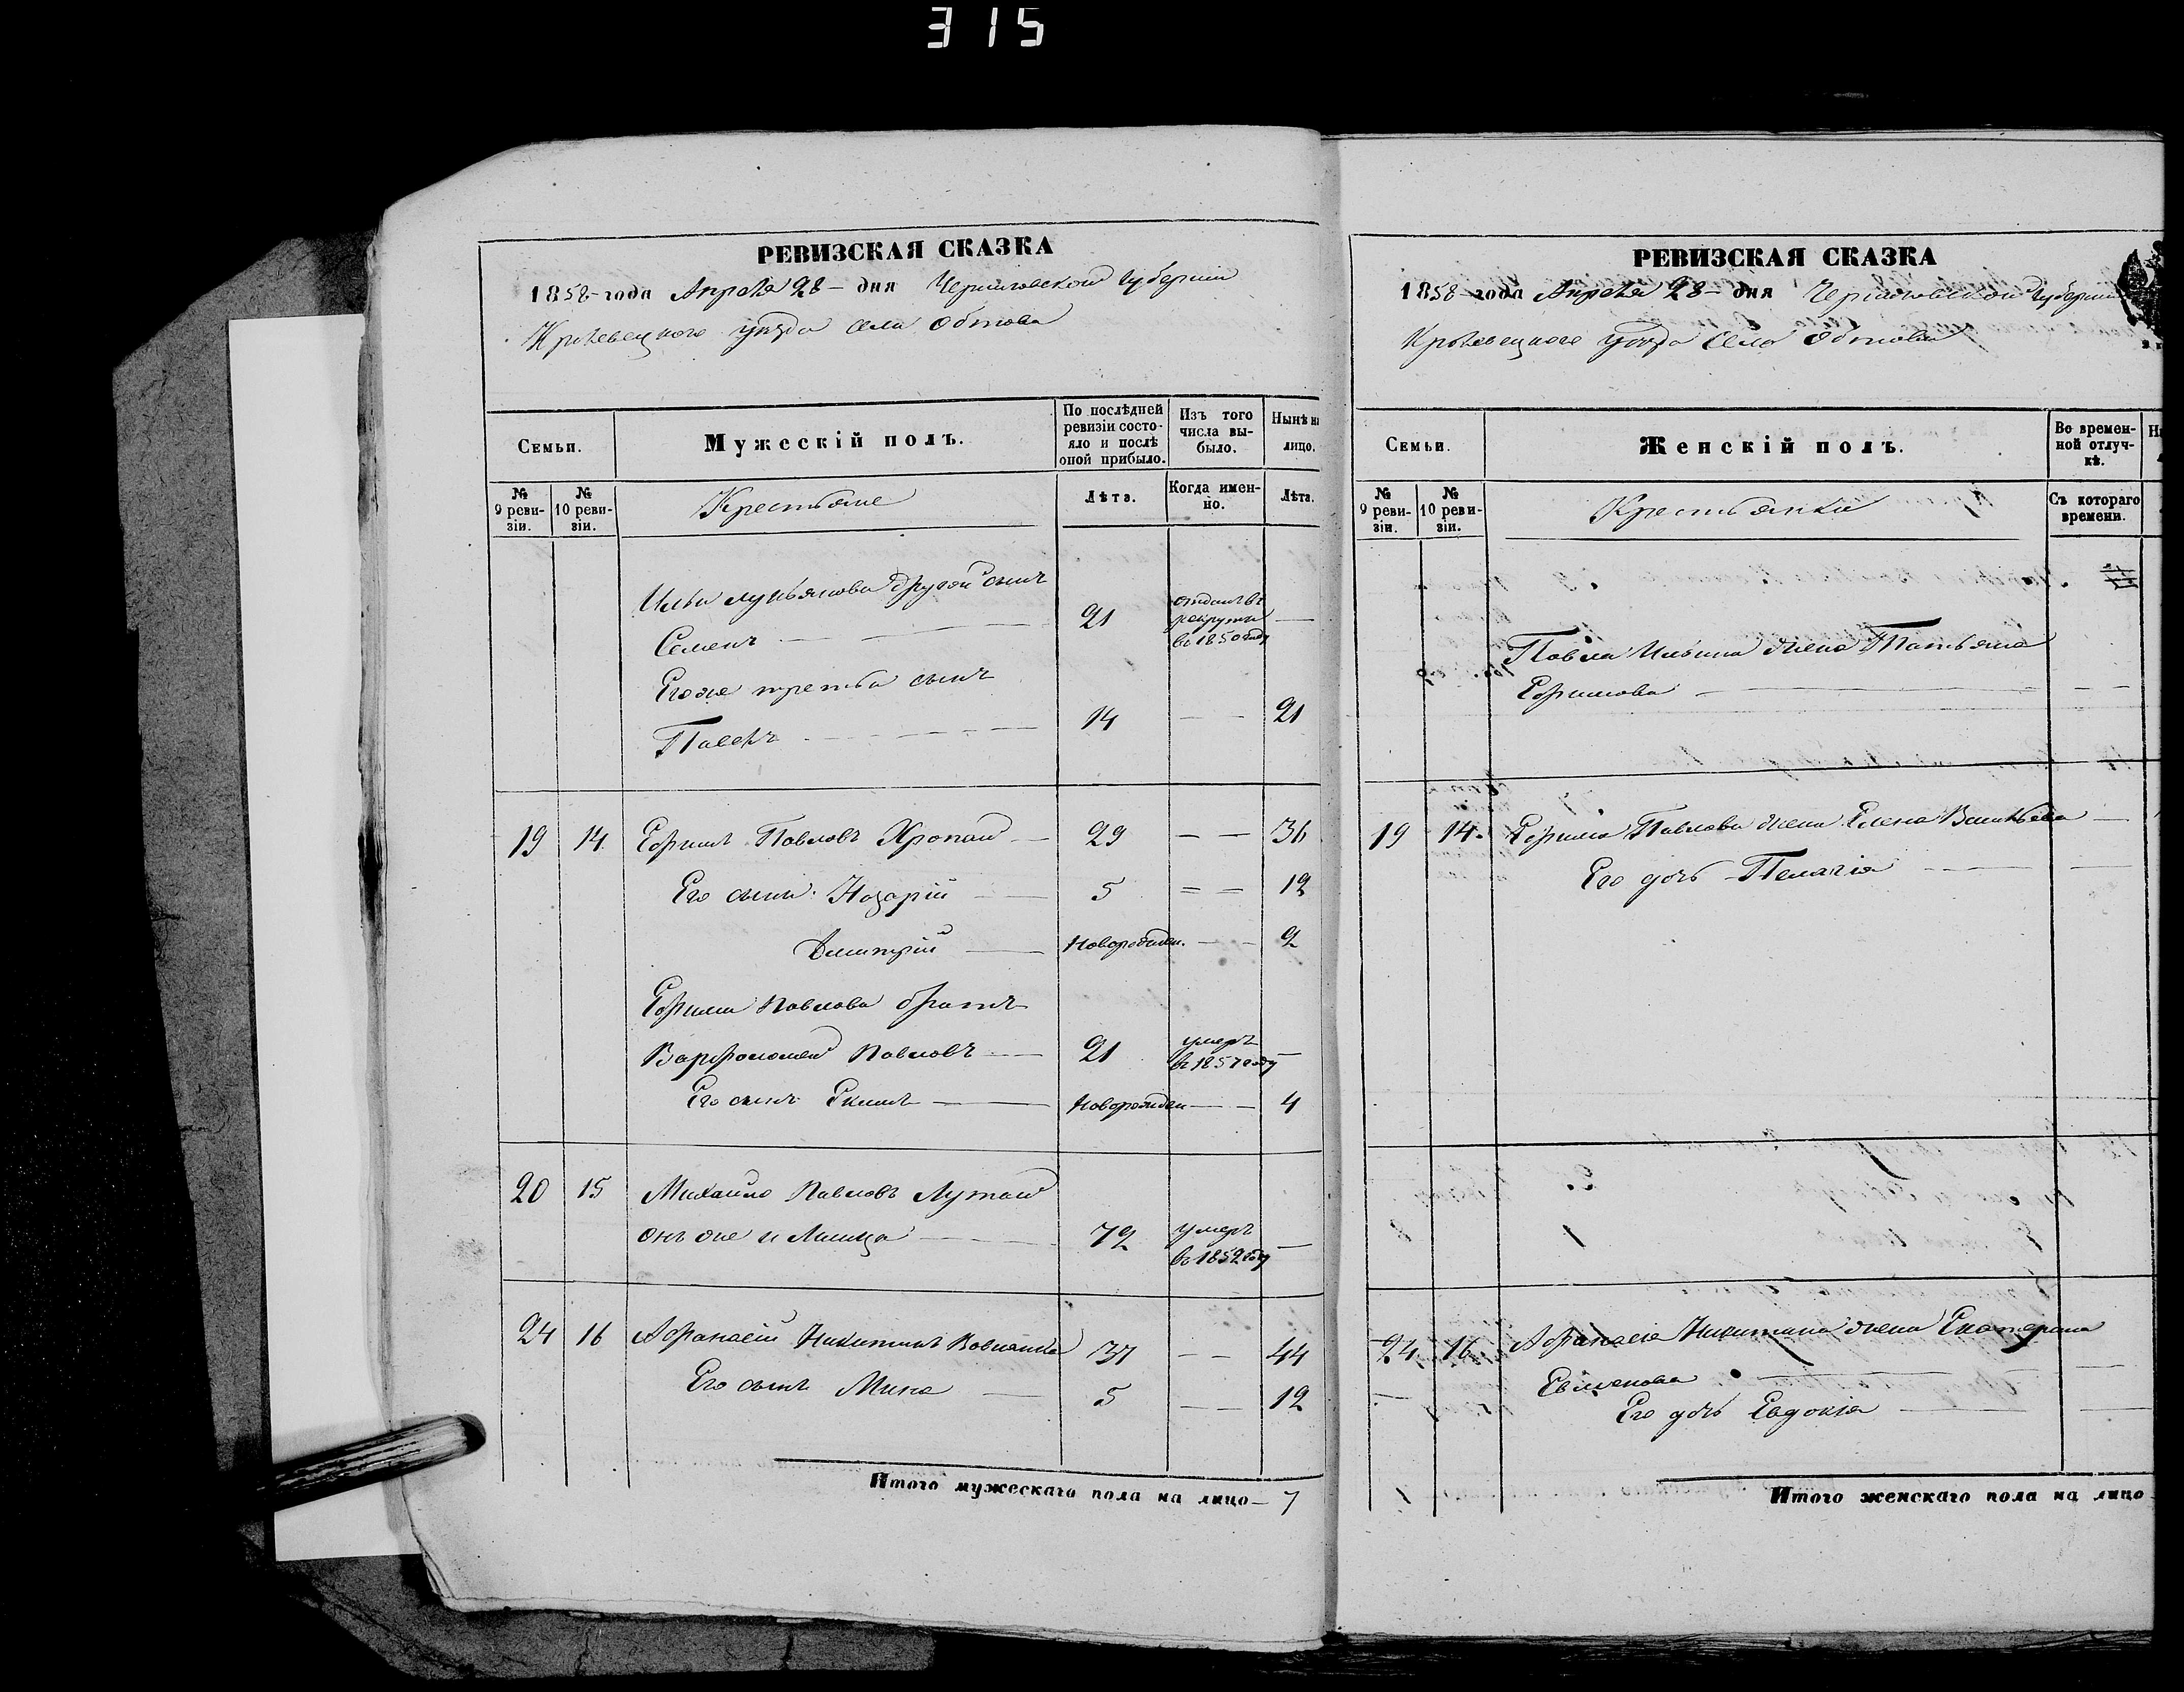 315
РЕВИЗСКАЯ СКАЗКА
1858 года Апреля 28 дня Черниговской губернии
Кролевецкого уезда села Обтова
Семьи.
Мужескій полъ.
По послѣдней ревизіи состояло и послѣ оной прибыло.
Изъ того числа выбыло.
Нынѣ на лицо.
№ 9 ревизіи.
№ 10 ревизіи.
Крестьяне
Лѣта.
Когда именно.
Лѣта.
Ильи Лукьянова другой сынъ
Семенъ 21 отданъ въ рекруты въ 1850 году
Его же третьи сынъ
Павелъ 14 21
19 14 Ефимъ Павловъ Хропач 29 36
Его сыны: Назарій 5 12
Дмитрій Новорожден. 9
Ефима Павлова братъ
Варфоломей Павловъ 21 умеръ въ 1857 году
Его сынъ Екимъ Новорожден 4
20 15 Михайло Павловъ
онъ же и Лисица 72 умеръ въ 1852 году
24 16 Афанасій Никитинъ 37 44
Его сынъ Мина 5 12
Итого мужескаго пола на лицо 7
РЕВИЗСКАЯ СКАЗКА
1858 года Апреля 28 дня Черниговской губернии
Кролевецкого уезда села Обтова
Семьи.
Женскій полъ.
Во временной отлучкѣ.
№ 9 ревизіи.
№ 10 ревизіи.
Крестьянки
Съ котораго времени.
Павла Ильина жена Татьяна
Ефимова
19 14. Ефима Павлова жена Елена Васильева
Его дочь Пелагія
24 16 Афанасія Никитина жена Екатерина
Его дочь Евдокія
Итого женскаго пола на лицо